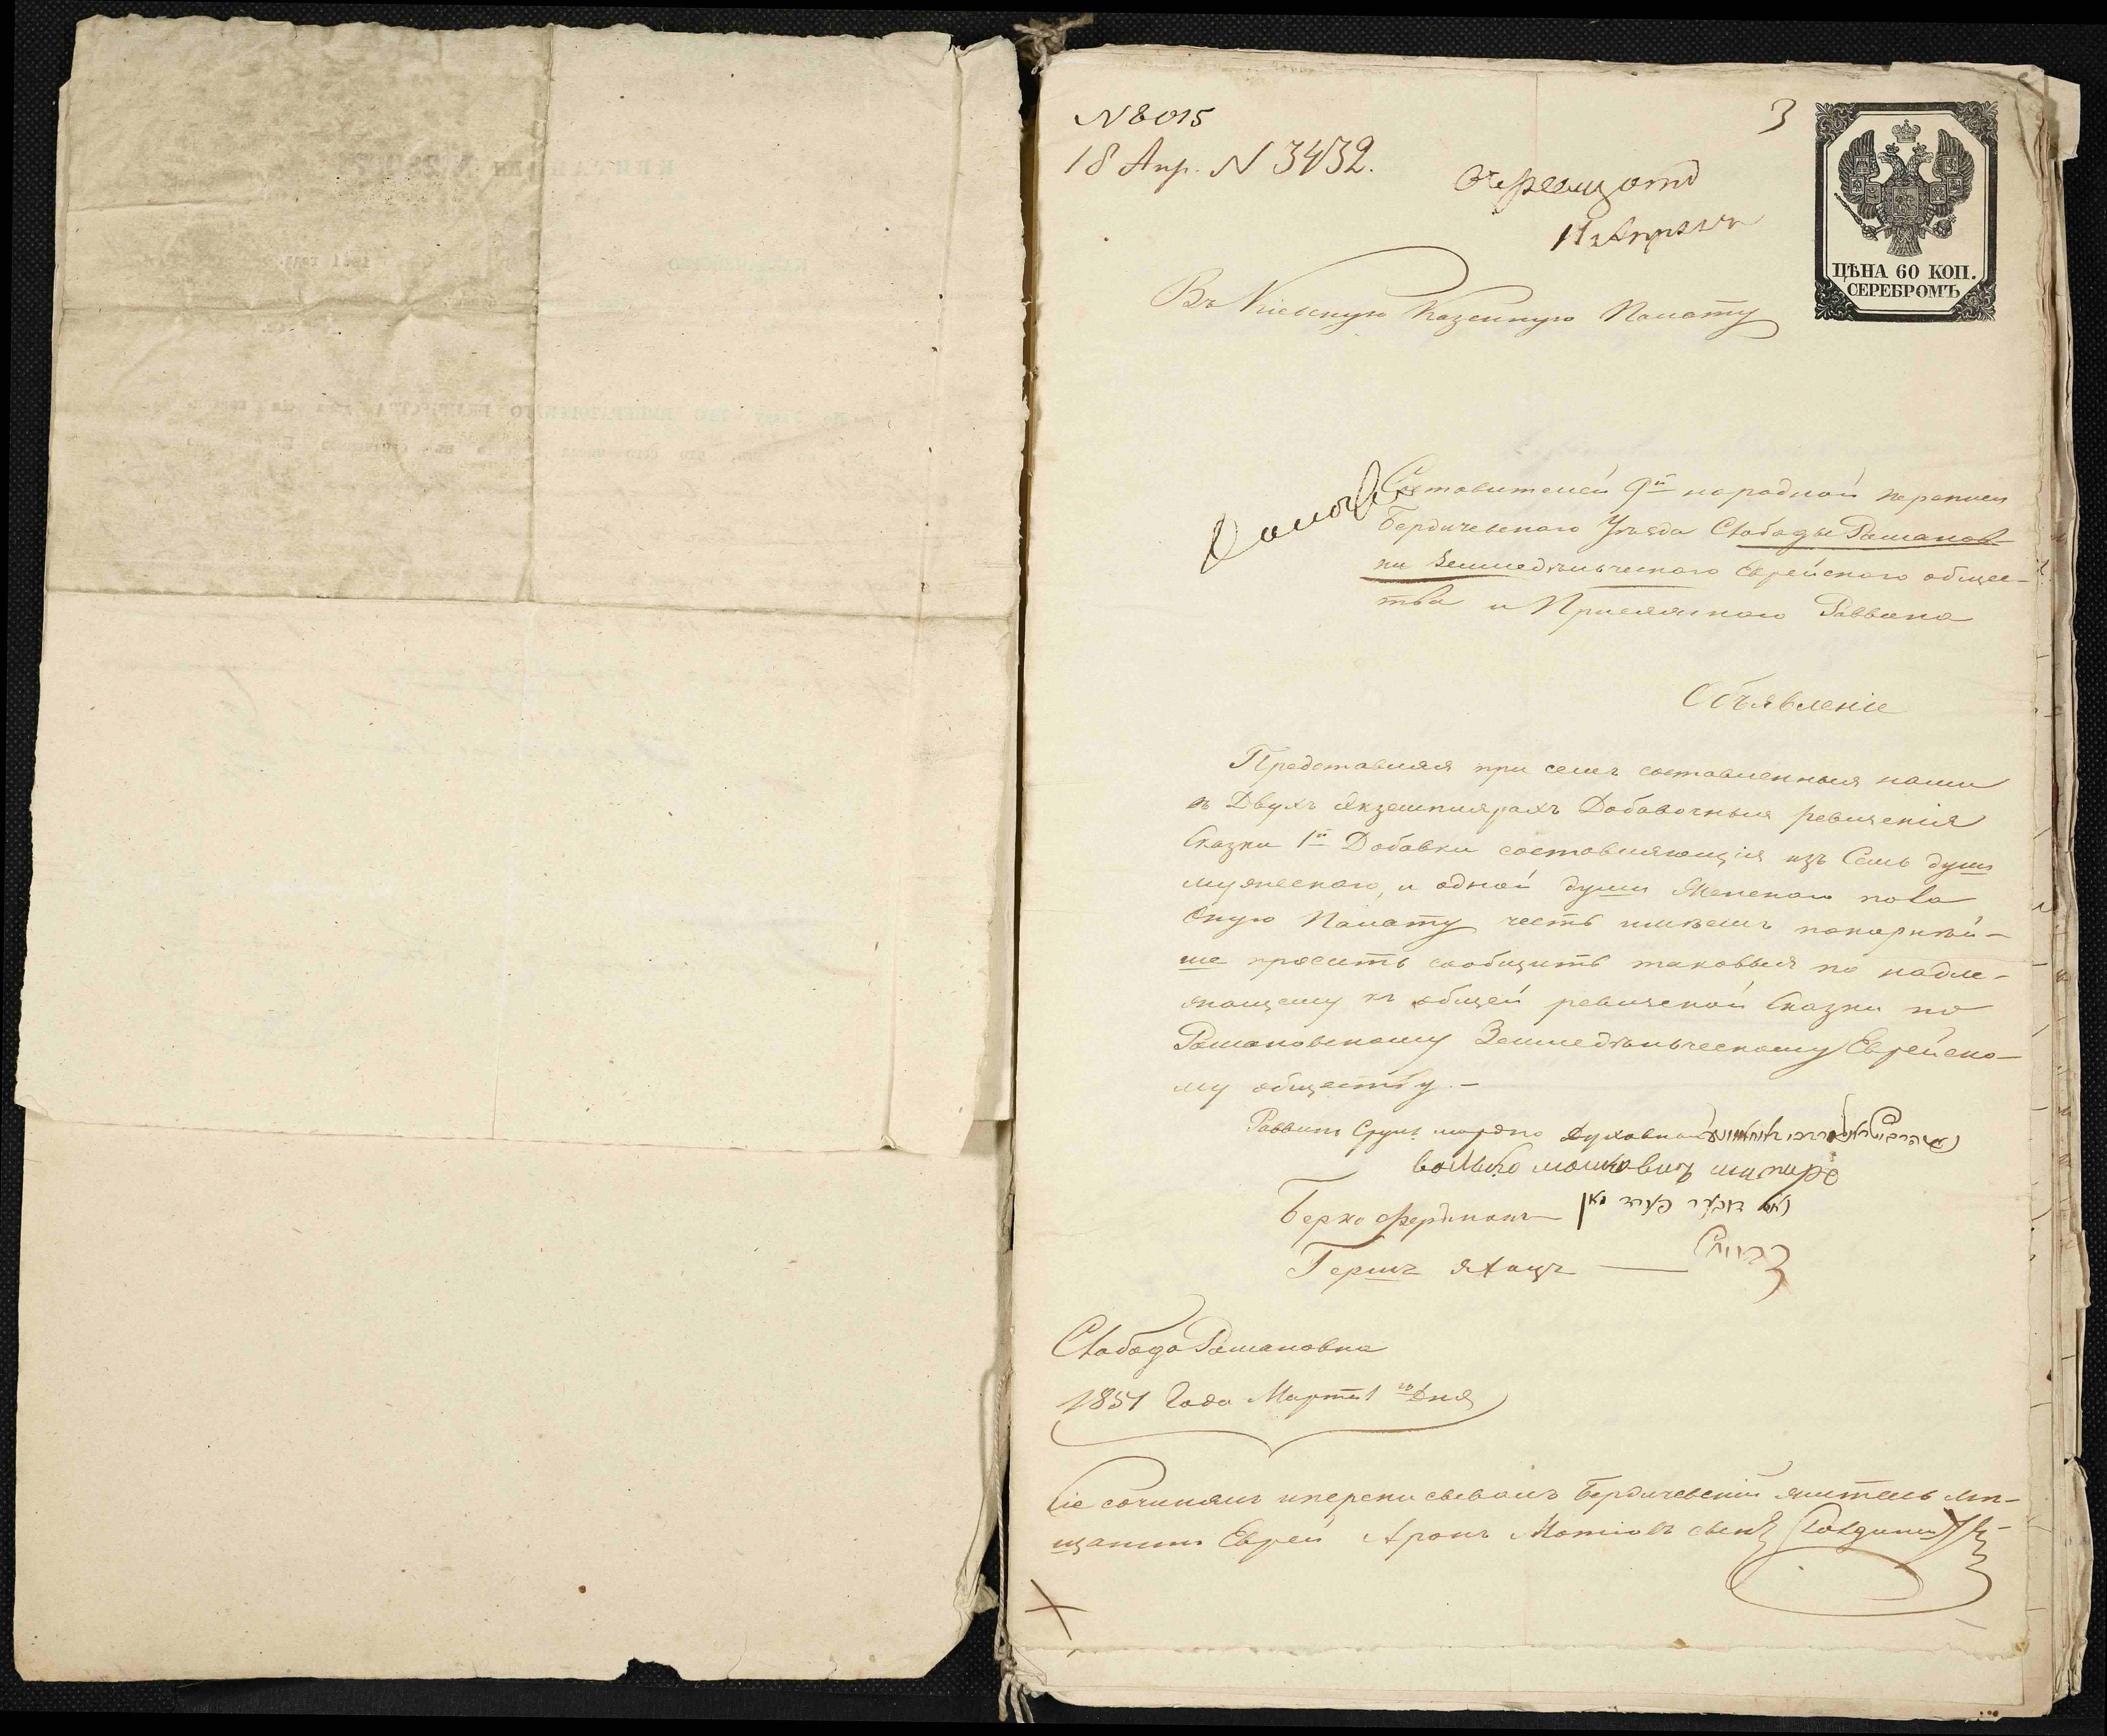 N 8015
18 Апр. N 3432.
3
11 Апреля
ЦѢНА 60 КОП.
СЕРЕБРОМЪ
Въ Кіевскую Казенную Палату
Составителей 9й народной переписи
Бердичевскаго Уѣзда Слободы Романов-
ки Земледѣльческаго Еврейскаго общес-
тва и Присяжнаго Раввина
Объявленіе
Представляя при семъ составленныя нами
въ Двухъ Экземплярахъ Добавочныя ревизскія
Сказки 1й Добавки составляющія изъ Семь душъ
мужескаго, и одной души Женскаго пола
Оную Палату честь имѣемъ покорнѣй-
ше просить сообщить таковыя по надле-
жащему къ общей ревизской Сказки по
Романовскому Земледѣльческому Еврейско-
му обществу. -
Раввинъ Сруль
волько мошковичъ шапиро
Берко Фердманъ
Гершъ
Слобода Романовка
1851 Года Марта 1го Дня
Сіе сочинялъ и переписывалъ Бердичевскій житель мѣ-
щанинъ Еврей Аронъ